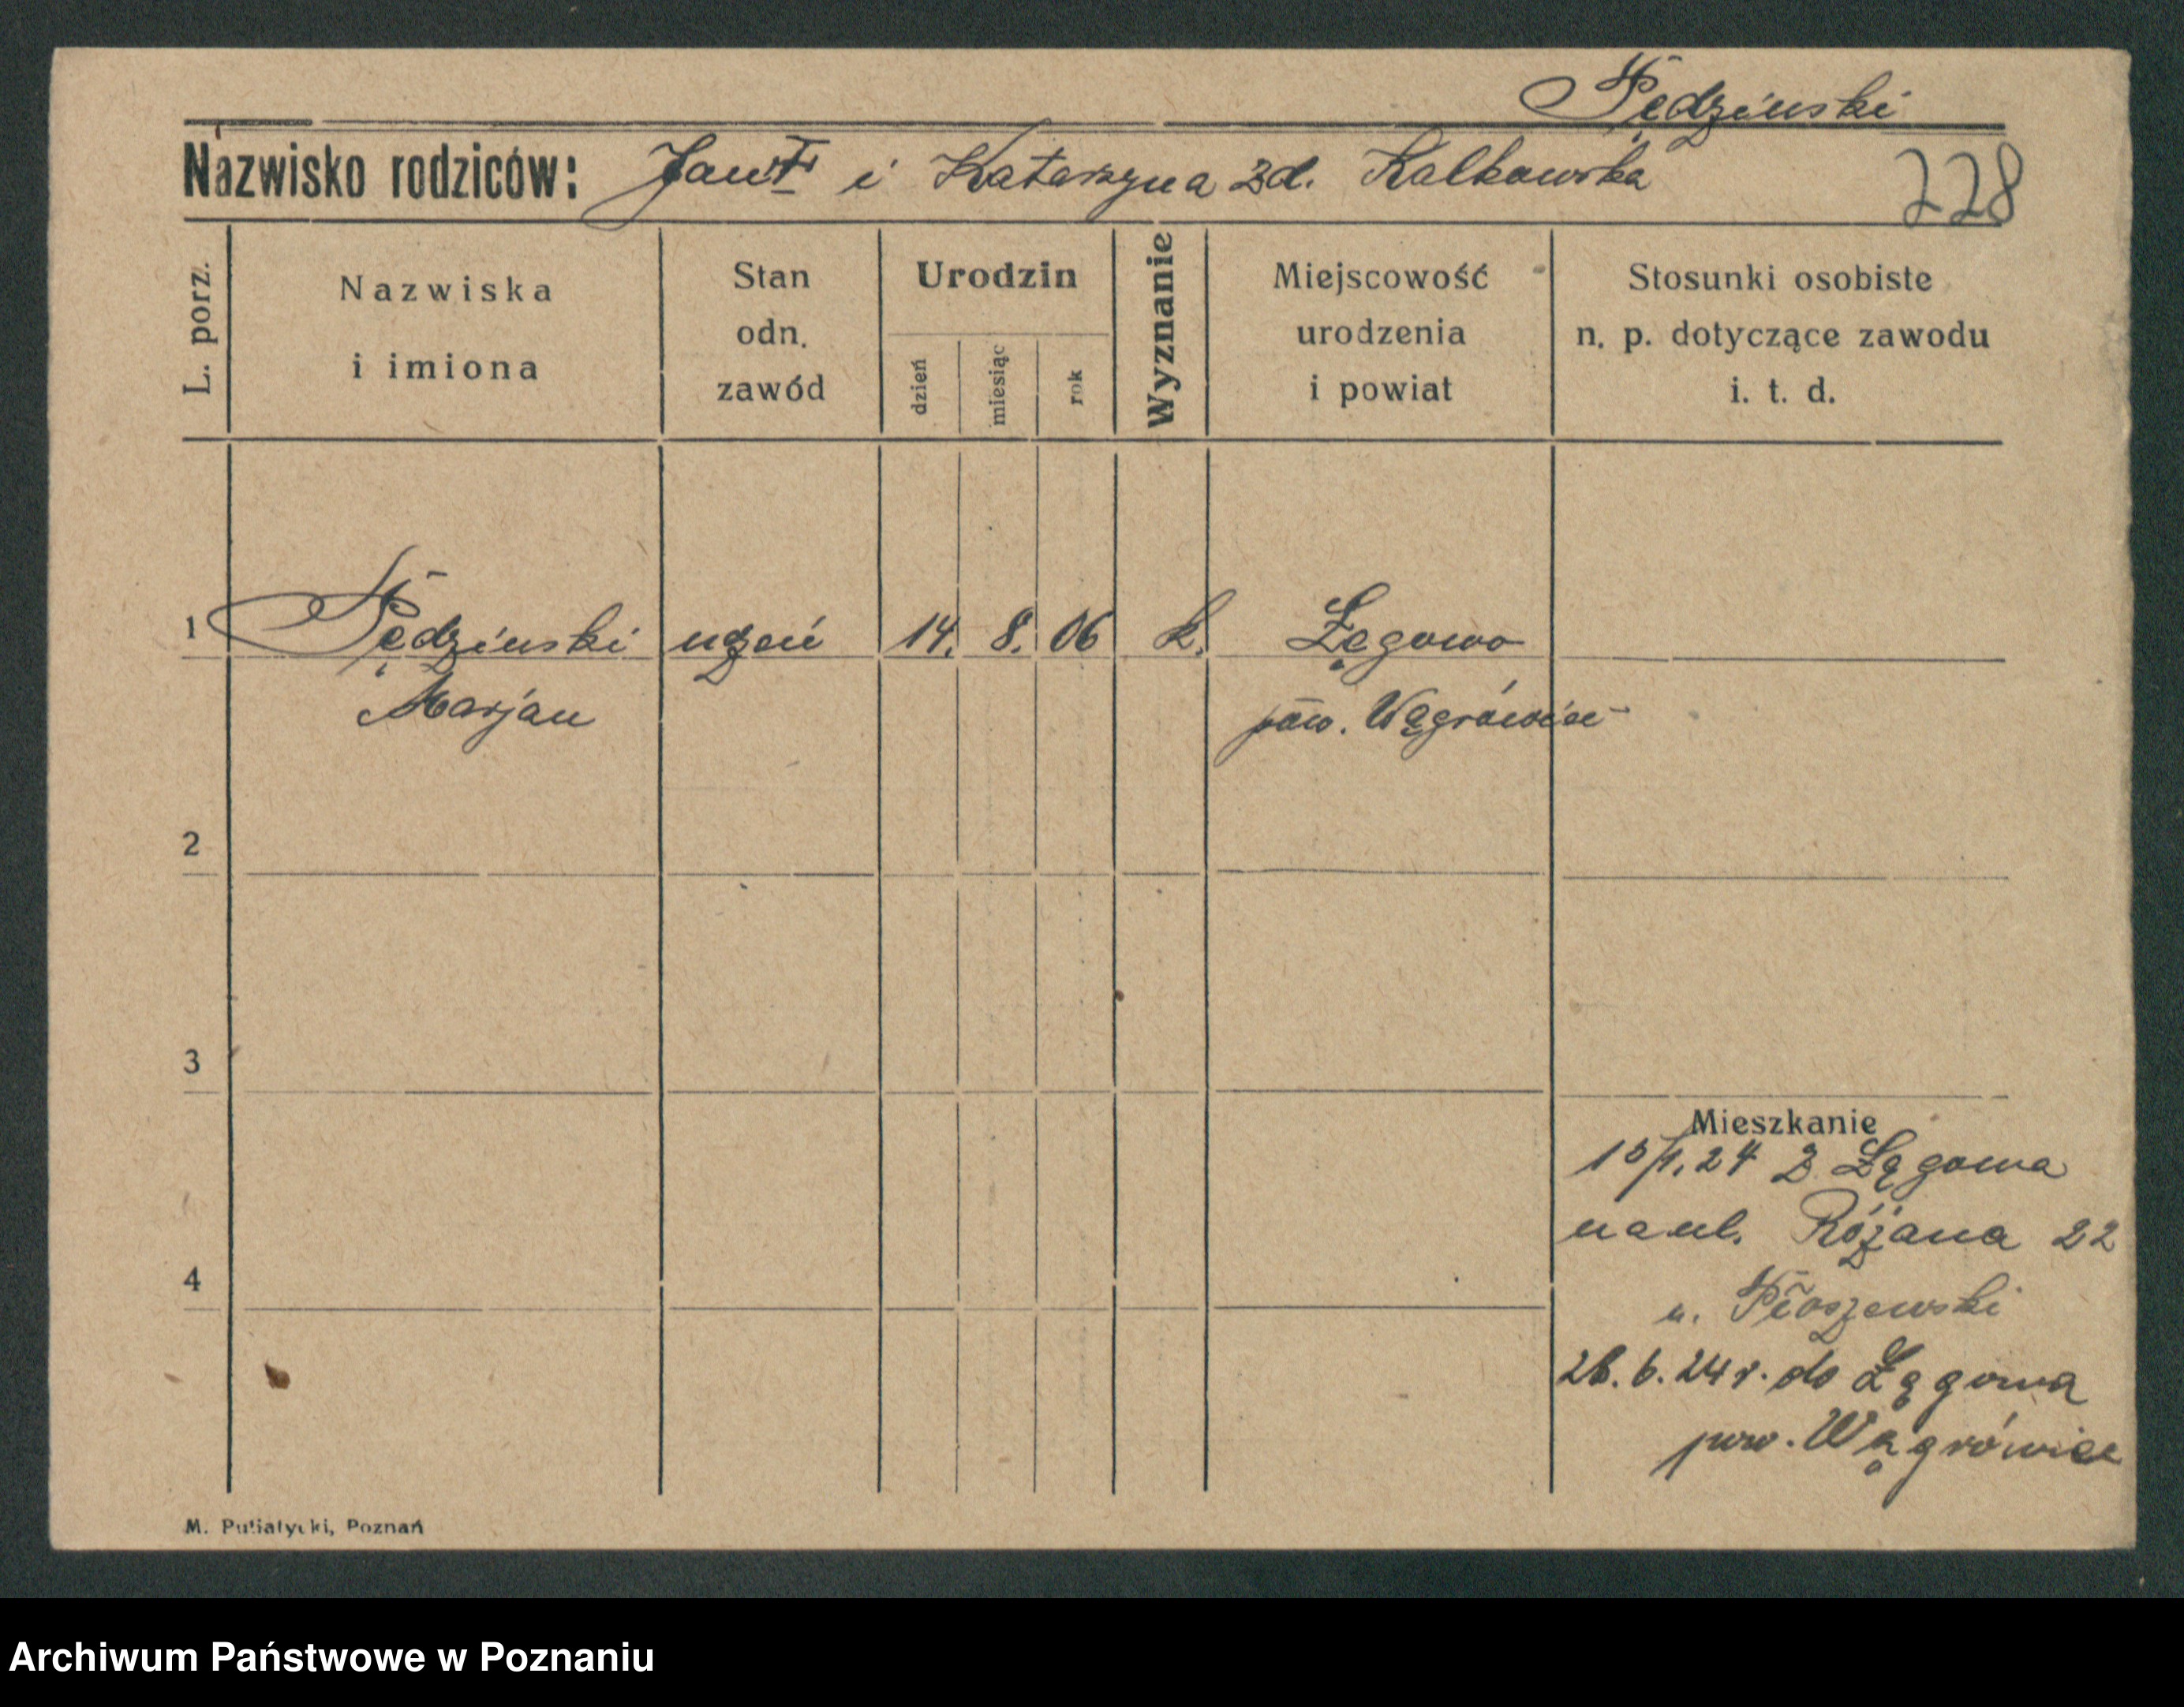 Pędzinski
Nazwisko rodziców: Jan † i Katarzyna zd. Kalkowska
228
L. porz.
Nazwiska
i imiona
Stan
odn.
zawód
Urodzin
dzień
miesiąc
rok
Wyznanie
Miejscowość
urodzenia
i powiat
Stosunki osobiste
n. p. dotyczące zawodu
i. t. d.
1 Pędzinski uczeń 14. 8. 06 k. Łęgowo
Marjan pow. Wągrówiec
2
3
Mieszkanie
24 z Łęgowa
na ul. Różana 22
u.
4
6. 24 r. do Łęgowa
pow. Wągrówiec
M. Putiatycki, Poznań
Archiwum Państwowe w Poznaniu